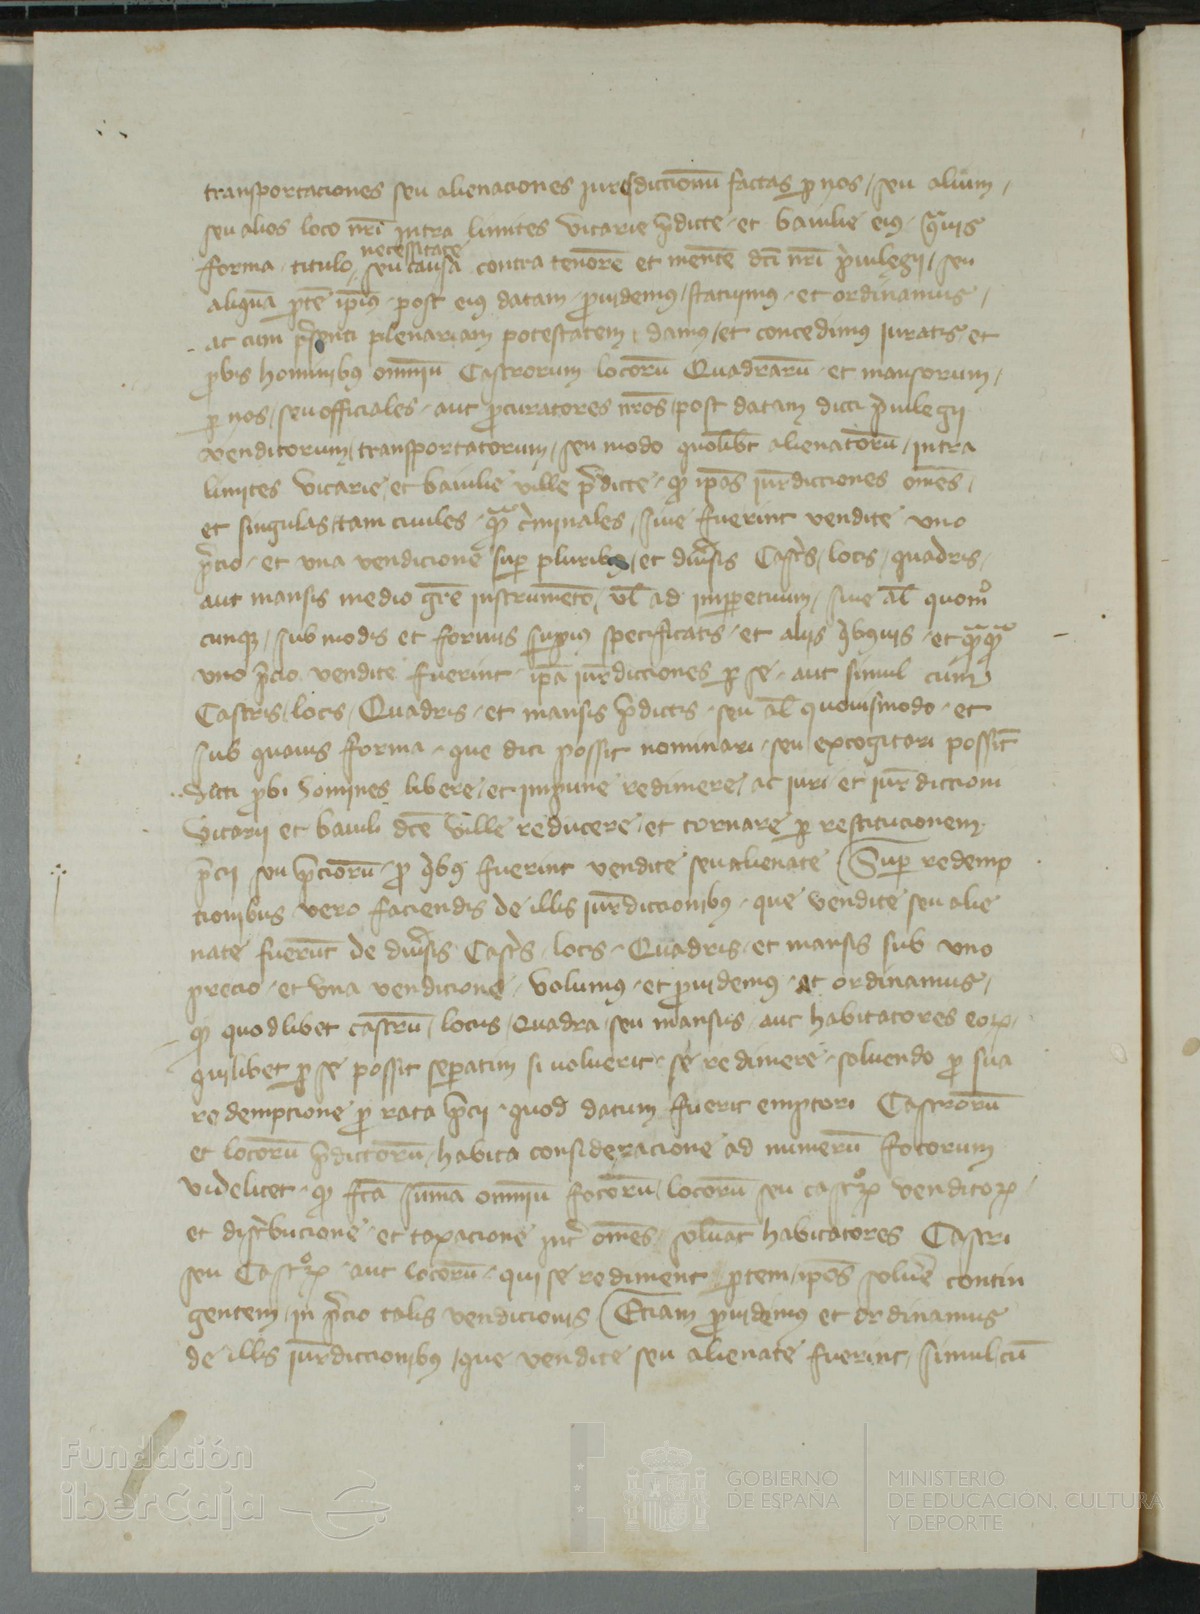 transportaciones seu alienaciones jurẽsdiccionũ factas p nos / seu alium /
seu alios loco nrĩ intra limites vicarie p̃dicte et baiulie eiꝰ quauis
necessitate
forma titulo seu causa contra tenorẽ et mentẽ dcĩ nrĩ p̃uilegij / seu
aliquã ptẽ ipiꝰ post eiꝰ datam prouidemꝰ / statuimꝰ et ordinamus /
ac cum p̃senti plenariam potestatem damꝰ / et concedimꝰ iuratis et
pbis hominibꝰ omniũ Castrorum locorũ Quadrarũ et mansorum /
p nos / seu officiales aut pcuratores nrõs / post datam dicti p̃uilegij
venditorum / transportatorum / seu modo quolibt̃ alienatorũ / intra
limites vicarie et baiulie ville p̃dicte q̃ ipãs jur̃dicciones omẽs /
et singulas / tam ciuiles qm̃ c̃minales / siue fuerint vendite vno
p̃cio et vna vendicione sup pluribꝰ / et diũsis Cast̃s / locis / quadris /
aut mansis medio gr̃e instrumẽto / vl̃ ad imppetuum / siue al̃ quomõ
cunqꝫ / sub modis et formis supius specificatis et alijs q̃bꝰuis et qm̃qm̃
vno p̃cio vendite fuerint ip̃a jur̃dicciones p se aut simul cum
Castris / locis / Quadris et mansis p̃dictis seu al̃ quouismodo et
sub quauis forma que dici possit nominari seu excogitari possit̃
Dicti pbi homines libere / et impune redimere / ac juri et jur̃diccioni
vicarij et baiuli dcẽ ville reducere / et tornare p restitucionem
p̃cij seu p̃ciorũ p q̃bꝰ fuerint vendite seu alienate Sup redemp
tionibus vero faciendis de illis jur̃diccionibꝰ que vendite seu alie
nate fuerũt de diũsis Cast̃s locis Quadris / et mansis sub vno
precio et vna vendicione volumꝰ et prouidemꝰ ac ordinamus /
q̃ quodlibet castrũ / locus / Quadra seu mansus aut habitatores eoꝝ
quilibet p se possit sepatim si voluerit se redimere soluendo p sua
redempcione p rata p̃cij quod datum fuerit emptori Castrorũ
et locorũ p̃dictorũ / habita consideracione ad numerũ focorum
videlicet q̃ fcã sum̃a omniũ focorũ / locorũ seu castroꝝ venditoꝝ /
et dist̃bucione et taxacione int̃ omẽs soluãt habitatores Castri
seu Castroꝝ aut locorũ qui se rediment ptem ipõs soluẽ contin
gentem in p̃cio talis vendicionis Etiam prouidemꝰ et ordinamus
de illis jur̃diccionibꝰ / que vendite seu alienate fuerint / simul cũ
Fundación
iberCaja
GOBIERNO
DE ESPAÑA
MINISTERIO
DE EDUCACIÓN, CULTURA
Y DEPORTE